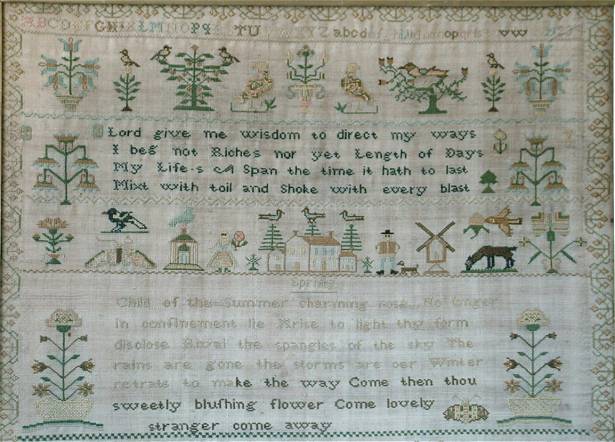 ABC GH LMNOPP TU XYZ abcdef opqrs vw
Lord give me wisdom to direct my ways
I beg not Riches nor yet Length of Days
My Life.s A Span the time it hath to last
Mixt with toil and Shoke with every blast
Spring
Child of the Summer charming rose No longer
in confinement lie Arise to light thy form
disclose Rival the spangles of the sky The
rains are gone the storms are oer Winter
retrats to make the way Come then thou
sweetly bluſhing flower Come lovely
stranger come away